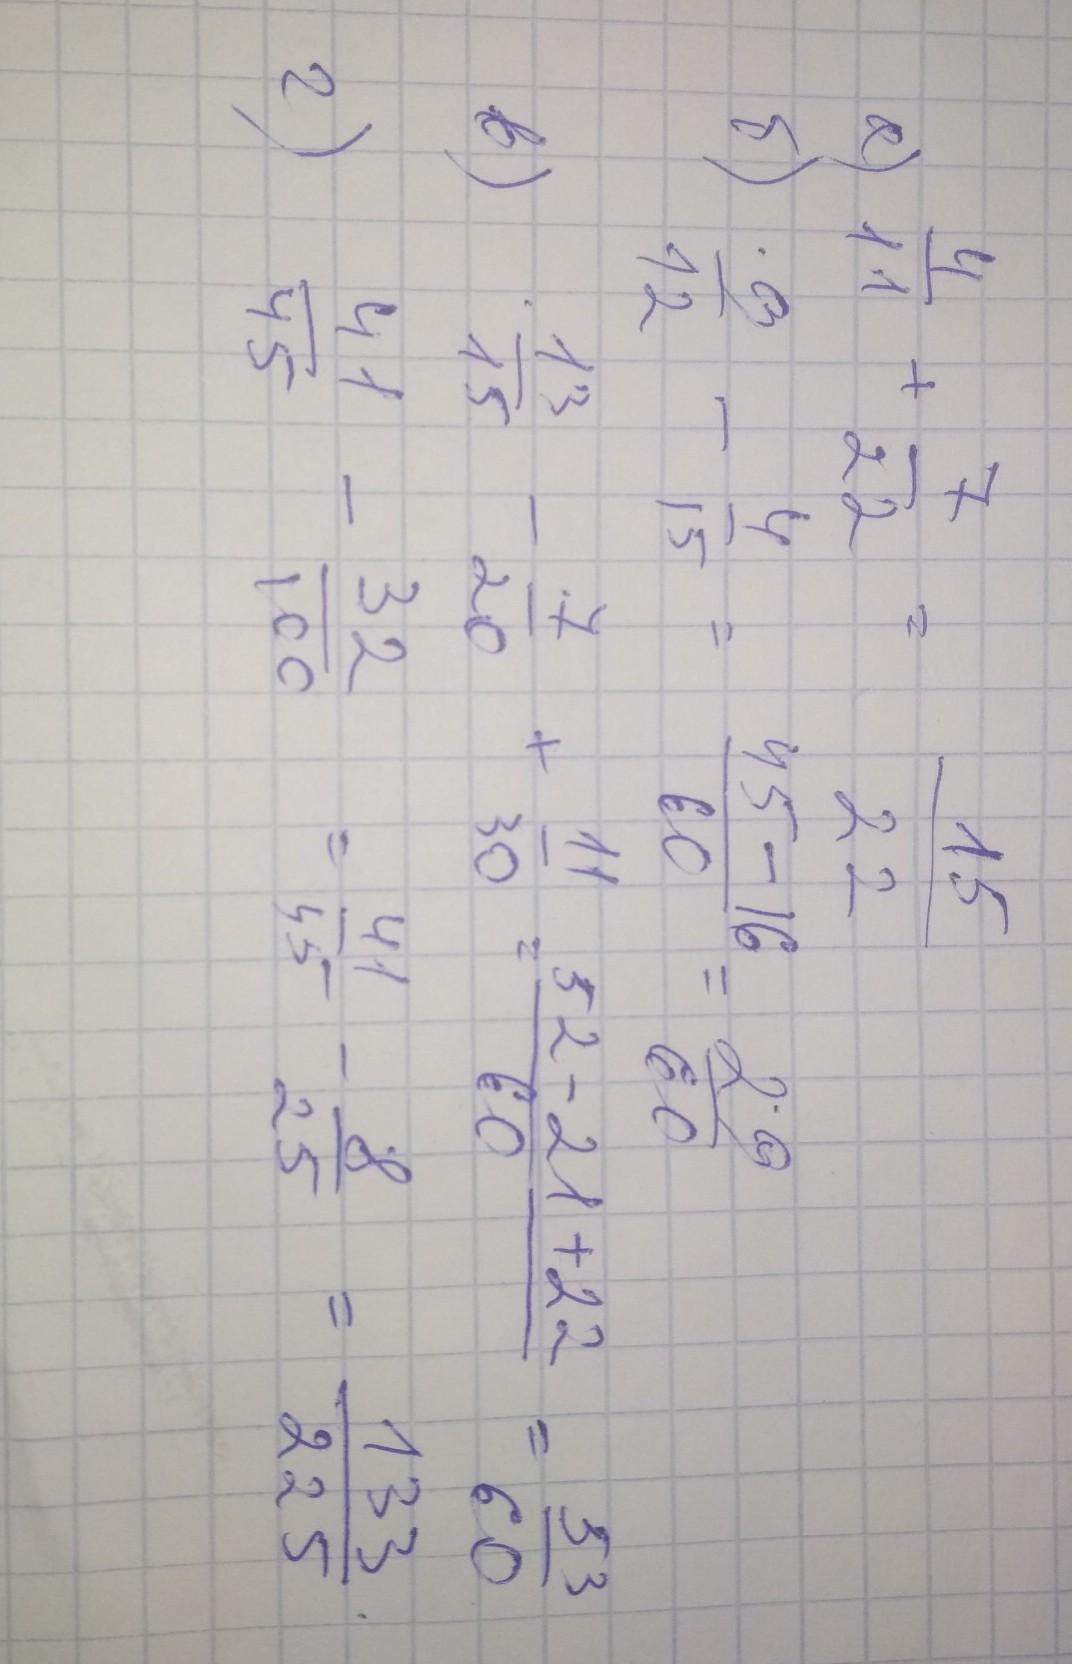 а) 4/11 + 7/22 = 15/22
б) 9/12 - 4/15 = 45-16/60 = 29/60
в) 13/15 - 7/20 + 11/30 = 52-21+22/60 = 53/60
г) 41/45 - 32/100 = 41/45 - 8/25 = 133/225